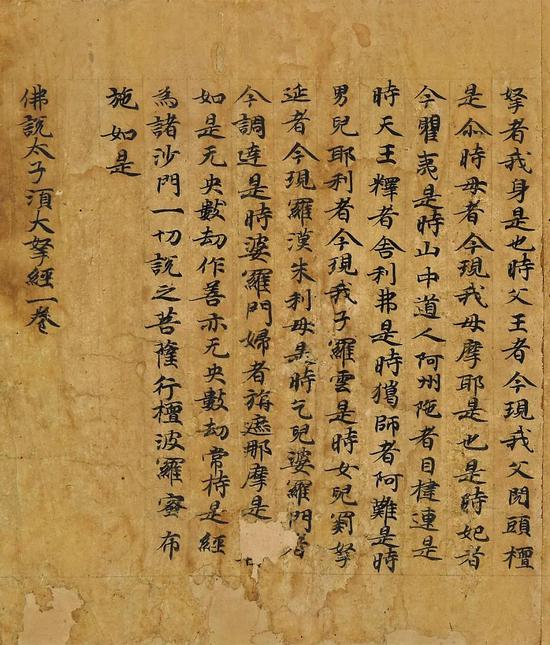 拏者我身是也時父王者今現我父閱頭檀
是尒時母者今現我母摩耶是也是時妃者
今瞿夷是時山中道人阿州陁者目揵連是
時天王釋者舍利弗是時獦師者阿難是時
男兒耶利者今現我子羅雲是時女兒罽拏
延者今現羅漢朱利母是時乞兒婆羅門者
今調達是時婆羅門婦者旃遮那摩是
如是无央數劫作善亦无央數劫常持是經
為諸沙門一切說之菩薩行檀波羅蜜布
施如是
佛說太子湏大拏經一卷